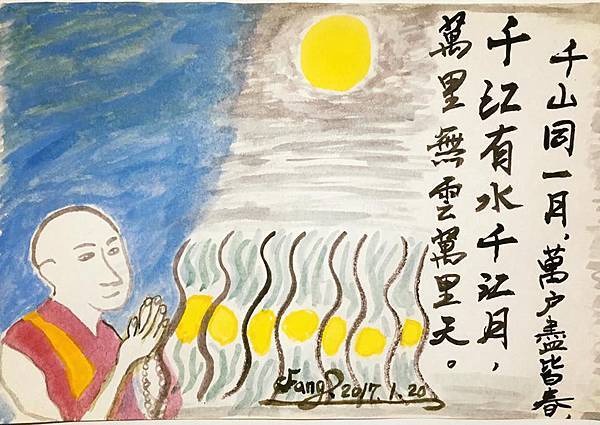 千山同一月，萬户盡皆春，
千江有水千江月，
萬里無雲萬里天。
Fang 2017.1.20